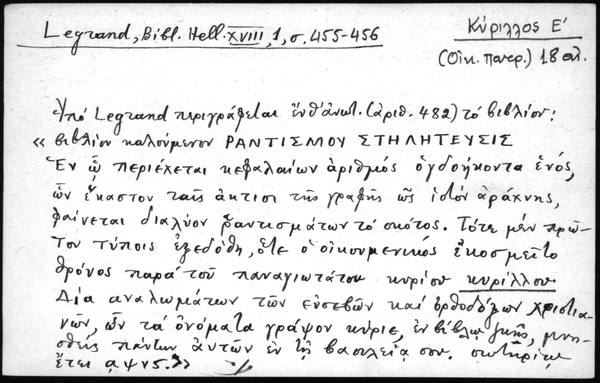 Legrand, Bibl. Hell. XVIII, 1, σ. 455-456
Κύριλλος Ε'
(Οἰκ. πατρ.) 18 αἰ.
Ὑπό Legrand περιγράφεται ἐνθ' ἀνωτ. (ἀριθ. 482) τό βιβλίον:
« βιβλίον καλούμενον ΡΑΝΤΙΣΜΟΥ ΣΤΗΛΙΤΕΥΣΙΣ
Ἐν ᾧ περιέχεται κεφαλαίων ἀριθμός ὀγδοήκοντα ἑνός,
ὧν ἕκαστον ταῖς ἀκτῖσι τῆς γραφῆς ὡς ἱστόν ἀράχνης,
φαίνεται διαλῦον ῥαντισμάτων τό σκότος. Τότε μέν πρῶ-
τον τύποις ἐξεδόθη, ὅτε ὁ οἰκουμενικός ἐκοσμεῖτο
θρόνος παρά τοῦ παναγιωτάτου κυρίου κυρίλλου
Διά αναλωμάτων τῶν εὐσεβῶν καί ὀρθοδόξων χριστια-
νῶν, ὧν τά ὀνόματα γράψον κύριε, ἐν βίβλῳ ζωῆς, μνησ-
θείς πάντων αὐτῶν ἐν τῇ βασιλείᾳ σου. σωτηρίῳ
ἔτει αψνς. »